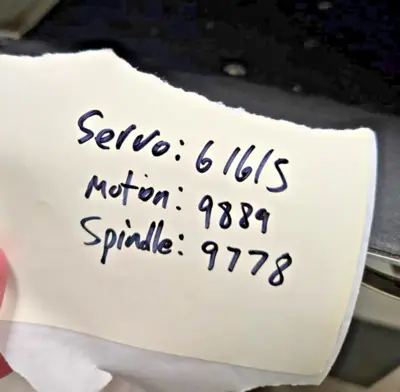 Servo: 61615
Motion: 9889
Spindle: 9778